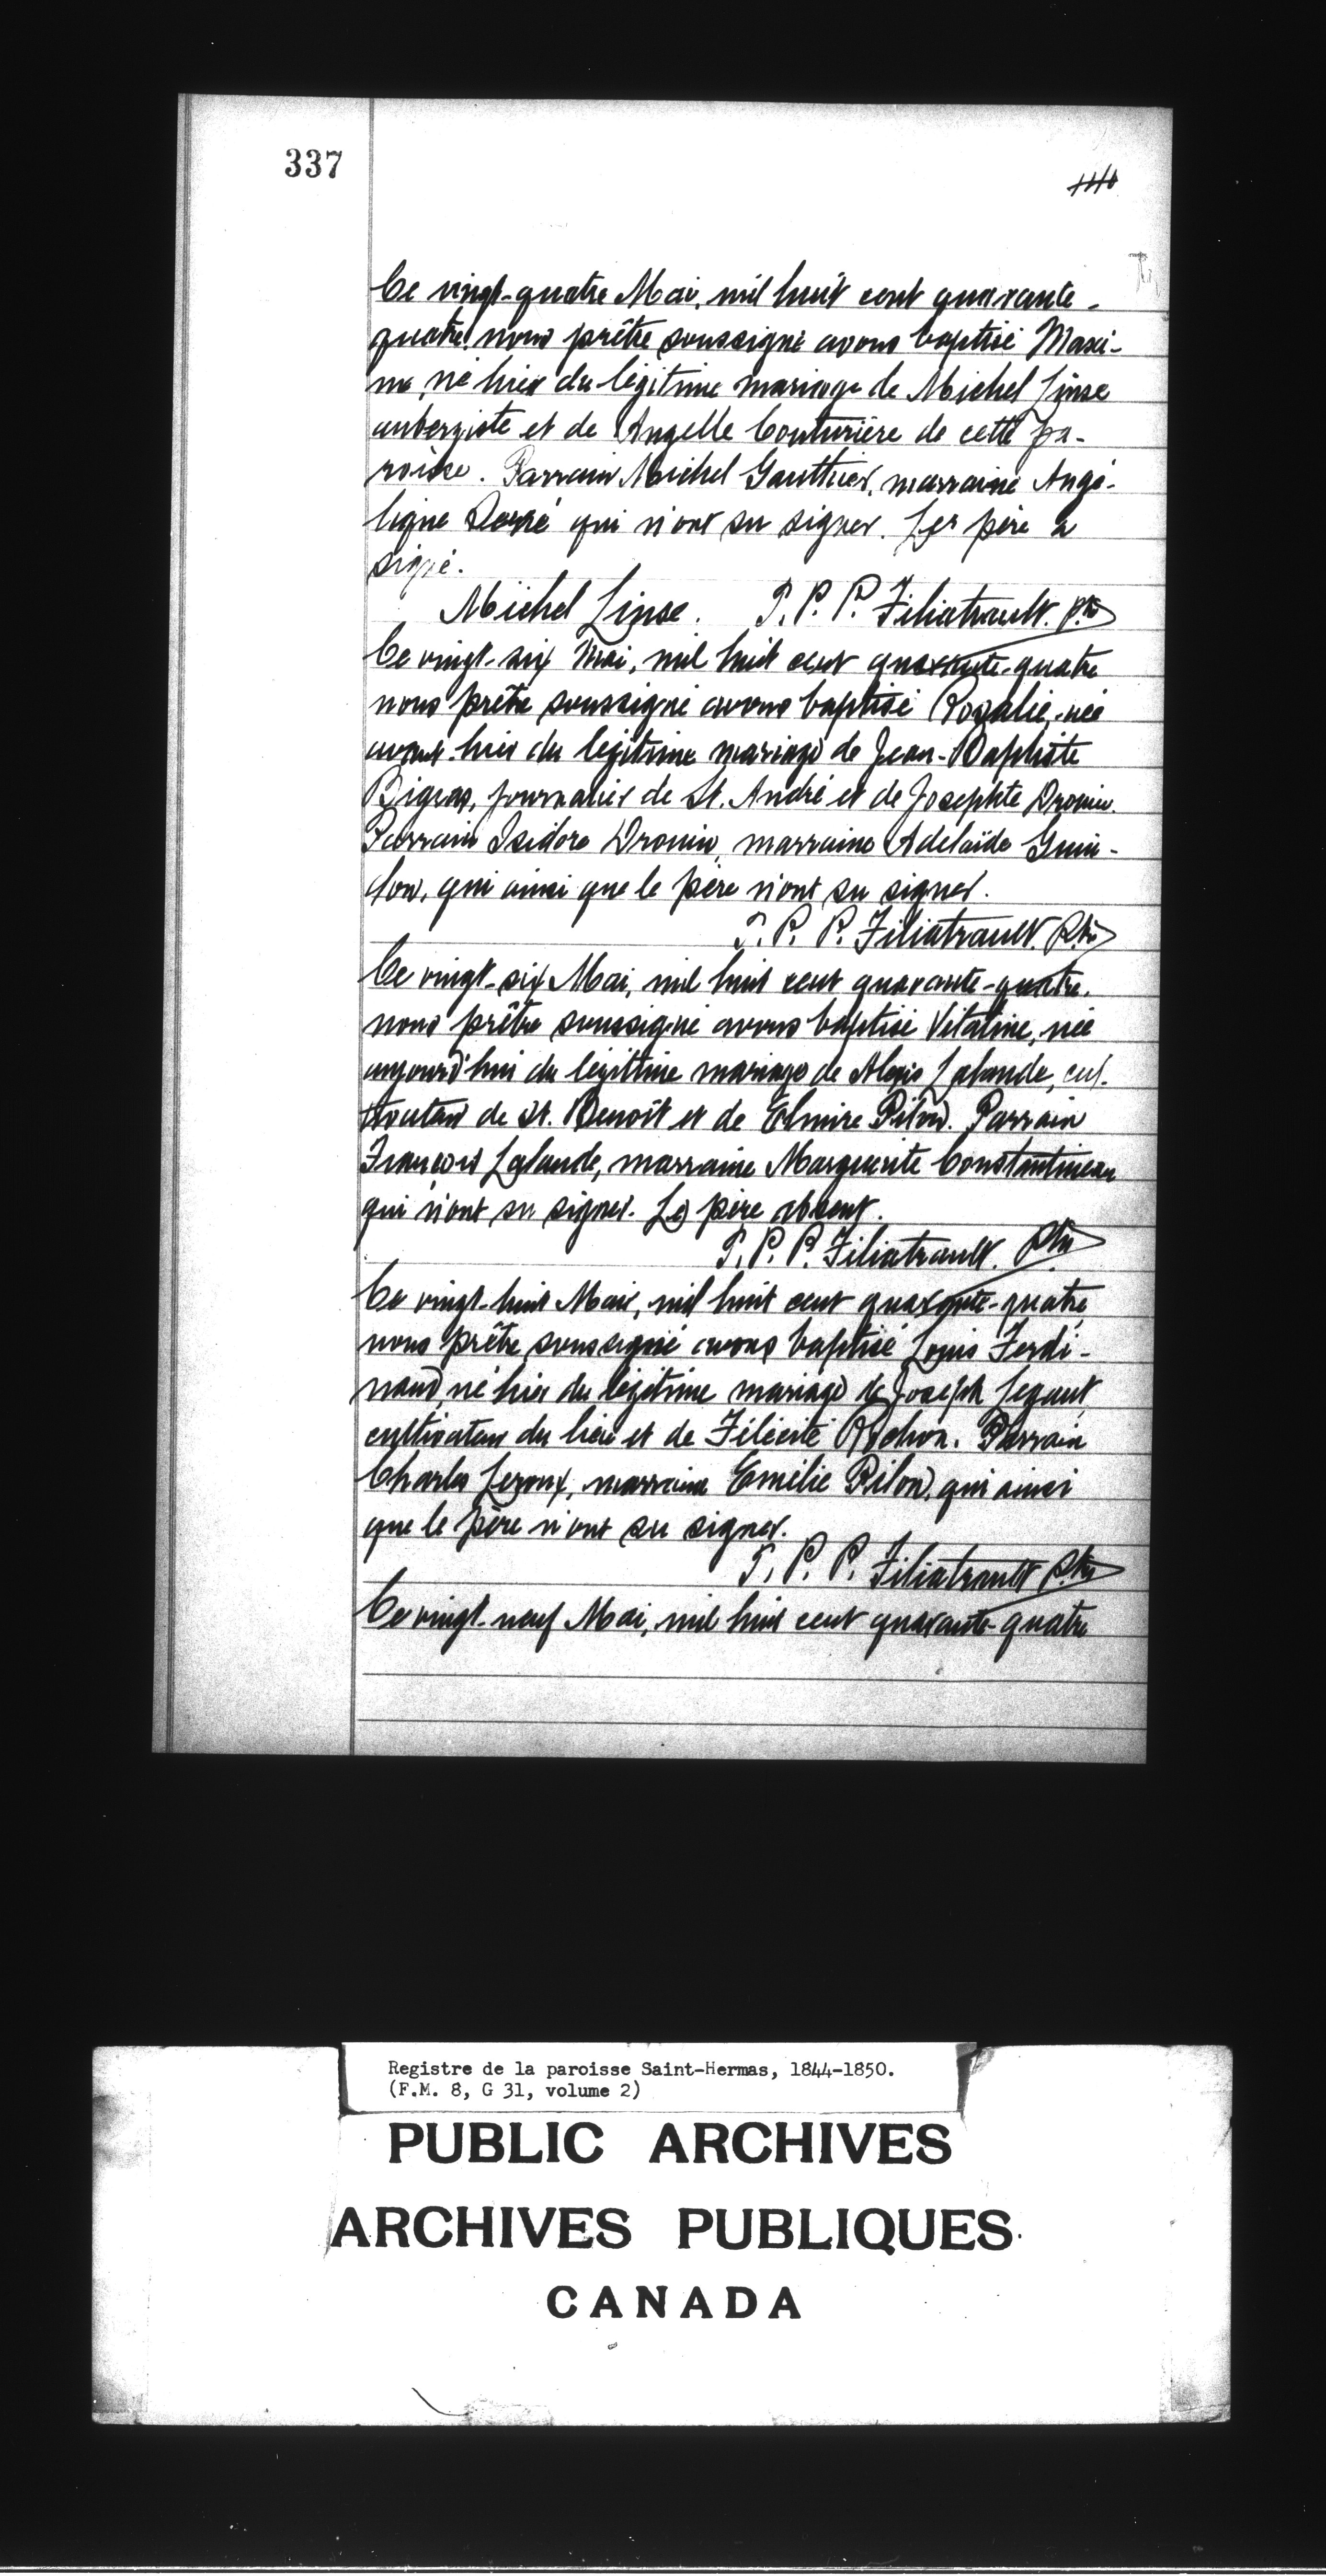 337
Ce vingt-quatre Mai, mil huit cent quarante-
quatre nous prêtre soussigné avons baptisé Maxi-
me, né hier du légitime mariage de Michel Linse
aubergiste et de Angelle Couturière de cette pa-
roisse. Parrain Michel Gauthier, marraine Angé-
lique qui n'ont su signer. Le père a
signé.
Michel Linse. T. P. P. Filiatrault. Ptre
Ce vingt-six Mai, mil huit cent quarante-quatre
nous prêtre soussigné avons baptisé Rosalie, née
avant-hier du légitime mariage de Jean-Baptiste
Bigras, journalier de St. André et de Josephte Drouin.
Parrain Isidore Drouin, marraine Adelaïde Guin-
don, qui ainsi que le père n'ont su signer.
T. P. P. Filiatrault. Ptre
Ce vingt-six Mai, mil huit cent quarante-quatre,
nous prêtre soussigné avons baptisé Vitaline, née
aujourd'hui du légitime mariage de Alexis Lalande, cul-
tivateur de St. Benoît et de Elmire Pilon. Parrain
François Lalande, marraine Marguerite Constantineau
qui n'ont su signer. Le père absent.
T. P. P. Filiatrault. Ptre
Ce vingt-huit Mai, mil huit cent quarante-quatre
nous prêtre soussigné avons baptisé Louis Ferdi-
nand, né hier du légitime mariage de Joseph Legaut
cultivateur du lieu et de Félicité Rochon. Parrain
Charles Leroux, marraine Emélie Pilon, qui ainsi
que le père n'ont su signer.
T. P. P. Filiatrault Ptre
Ce vingt-neuf Mai, mil huit cent quarante-quatre
Registre de la paroisse Saint-Hermas, 1844-1850.
(F.M. 8, G 31, volume 2)
PUBLIC ARCHIVES
ARCHIVES PUBLIQUES
CANADA